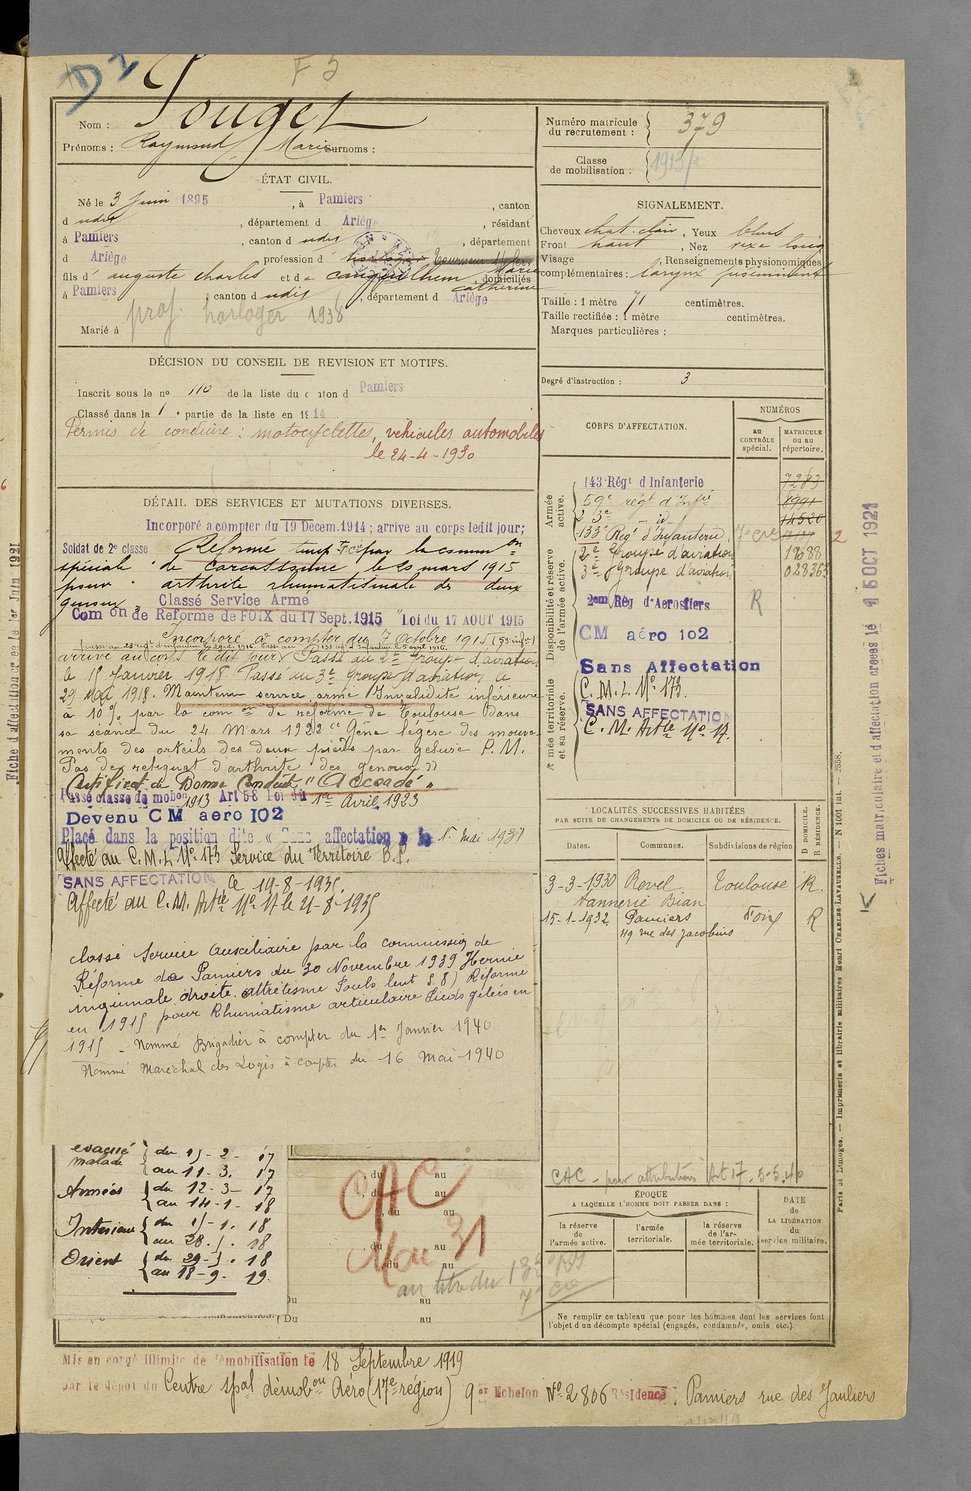 D 2
F 5
Nom : Pouget
Prénoms : Raymond Marie Surnoms :
Numéro matricule du recrutement : 379
Classe de mobilisation :
ÉTAT CIVIL.
Né le 3 Juin 1895, à Pamiers, canton
d udit, département d Ariège, résidant
à Pamiers, canton d udit, département
d Ariège, profession d horloger
fils d' auguste charles et d e Canguilhem Marie Catherine domiciliés
à Pamiers, canton d udit, département d Ariège
prof horloger 1938
Marié à
SIGNALEMENT.
Cheveux chat. clair, Yeux bleus
Front haut, Nez
Visage , Renseignements physionomiques
complémentaires : larynx proéminent
Taille : 1 mètre 71 centimètres.
Taille rectifiée : 1 mètre centimètres.
Marques particulières :
Degré d'instruction : 3
DÉCISION DU CONSEIL DE REVISION ET MOTIFS.
Inscrit sous le nº 110 de la liste du canton d Pamiers
Classé dans la 1 e partie de la liste en 1914
Permis de conduire : motocyclettes, véhicules automobiles
le 24-4-1930
DÉTAIL DES SERVICES ET MUTATIONS DIVERSES.
Incorporé a compter du 19 Décem. 1914 ; arrive au corps ledit jour;
Soldat de 2e classe Réformé temp re par la comm on
spéciale de Carcassonne le 23 mars 1915
pour arthrite rhumatismale des deux
genoux. Classé Service Armé
Com on de Réforme de FOIX du 17 Sept. 1915 Loi du 17 AOUT 1915
Incorporé à compter du 7 Octobre 1915
arrivé au corps le dit jour Passé au 2e Groupe d'aviation
le 15 Janvier 1918 Passé au 3e Groupe d'aviation le
29 Mai 1918. Maintenu service armé Invalidité inférieure
à 10 % par la com on de réforme de Toulouse dans
sa séance du 24 Mars 1922 "Gêne légère des mouve-
ments des orteils des deux pieds par gelure P. M.
Pas de reliquat d'arthrite des genoux"
Certificat de Bonne Conduite "Accordé"
Passé classe de mobon 1913 Art 58 Loi du 1er Avril 1923
Devenu CM aero 102
Placé dans la position dite « Sans affectation » le 1er mai 1931
Affecté au C. M. I. Nº 173 Service du Territoire B. P.
SANS AFFECTATION le 19-8-1935.
Affecté au C. M. Artie Nº 17 le 21-8-1935
Classé Service Auxiliaire par la commission de
Réforme de Pamiers du 30 Novembre 1939 Hernie
inguinale droite. Réformé
en 1915 pour Rhumatisme articulaire Pieds gelés en
1915 - Nommé Brigadier à compter du 1er Janvier 1940
Nommé Maréchal des Logis à compter du 16 Mai 1940
CORPS D'AFFECTATION.
NUMÉROS
au CONTRÔLE spécial.
MATRICULE ou au répertoire.
Armée active.
Disponibilité et réserve de l'armée active.
Armée territoriale et sa réserve.
143 Régt d'Infanterie 7283
59e régt d'Infie 8991
23e - id - 14520
133e Régt d'Infanterie 7e cie
2e Groupe d'aviation 18688
3e Groupe d'aviation 028363
2em Rég d'Aerostiers R
CM aéro 102
Sans Affectation
C. M. I. Nº 173.
SANS AFFECTATION
C. M. Artie Nº 17.
LOCALITÉS SUCCESSIVES HABITÉES
PAR SUITE DE CHANGEMENTS DE DOMICILE OU DE RÉSIDENCE.
D DOMICILE. R RÉSIDENCE.
Dates. Communes. Subdivisions de région
3-3-1930 Revel Toulouse R.
tannerie Bian
15-1-1932 Pamiers Foix R
49 rue des Jacobins
CAC - pour attribution Art 17. 5-5.40
ÉPOQUE
A LAQUELLE L'HOMME DOIT PASSER DANS :
la réserve de l'armée active.
l'armée territoriale.
la réserve de l'armée territoriale.
DATE DE LA LIBÉRATION du service militaire.
Ne remplir ce tableau que pour les hommes dont les services font
l'objet d'un décompte spécial (engagés, condamnés, omis etc.).
évacué malade du 15-2-17
au 11-3-17
Armées du 12-3-17
au 14-1-18
Intérieur du 15-1-18
au 28-5-18
Orient du 29-5-18
au 18-9-19
CAC
Mau 31
au titre du
7e cie
du au
Mis en congé illimité de démobilisation le 18 Septembre 1919
par le dépot du Centre spal démobon Aéro (17e région) 9 er Echelon Nº 2806 Résidence : Pamiers rue des Jauliers
Fiche d'affectation créée le 1er Juin 1921
Fiches matriculaire et d'affectation créées le 15 OCT 1921
Paris et Limoges. — Imprimerie et librairie militaires Henri CHARLES-LAVAUZELLE. — N 1001 Int. — 2558.